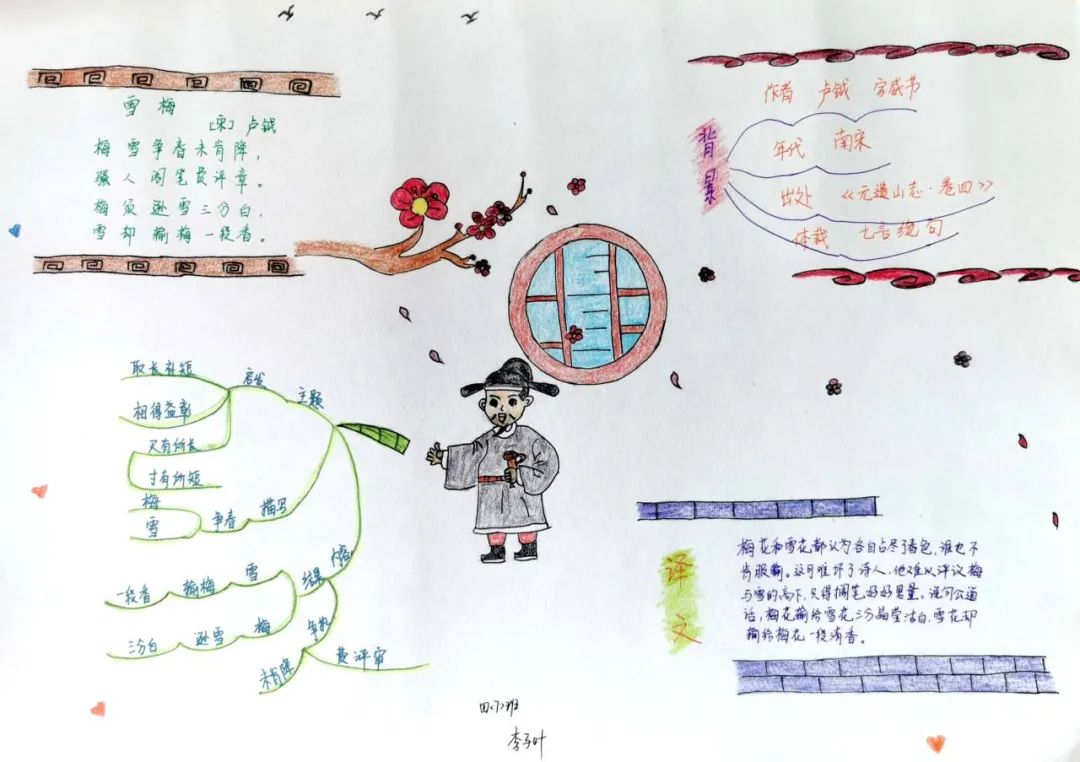 雪梅
[宋] 卢钺
梅雪争春未肯降,
骚人阁笔费评章。
梅须逊雪三分白,
雪却输梅一段香。
背景
作者 卢钺 字威节
年代 南宋
出处 《元遗山志·卷四》
体裁 七言绝句
主题
启发
取长补短
相得益彰
尺有所长
寸有所短
描写
争春
梅
雪
内容
结果
雪
输梅
一段香
梅
逊雪
三分白
争执
未肯降
费评审
译文
梅花和雪花都认为各自占尽了春色,谁也不
肯服输。这可难坏了诗人,他难以评议梅
与雪的高下,只得搁笔好好思量。说句公道
话,梅花输给雪花三分晶莹洁白,雪花却
输给梅花一段清香。
四<7>班
李子叶